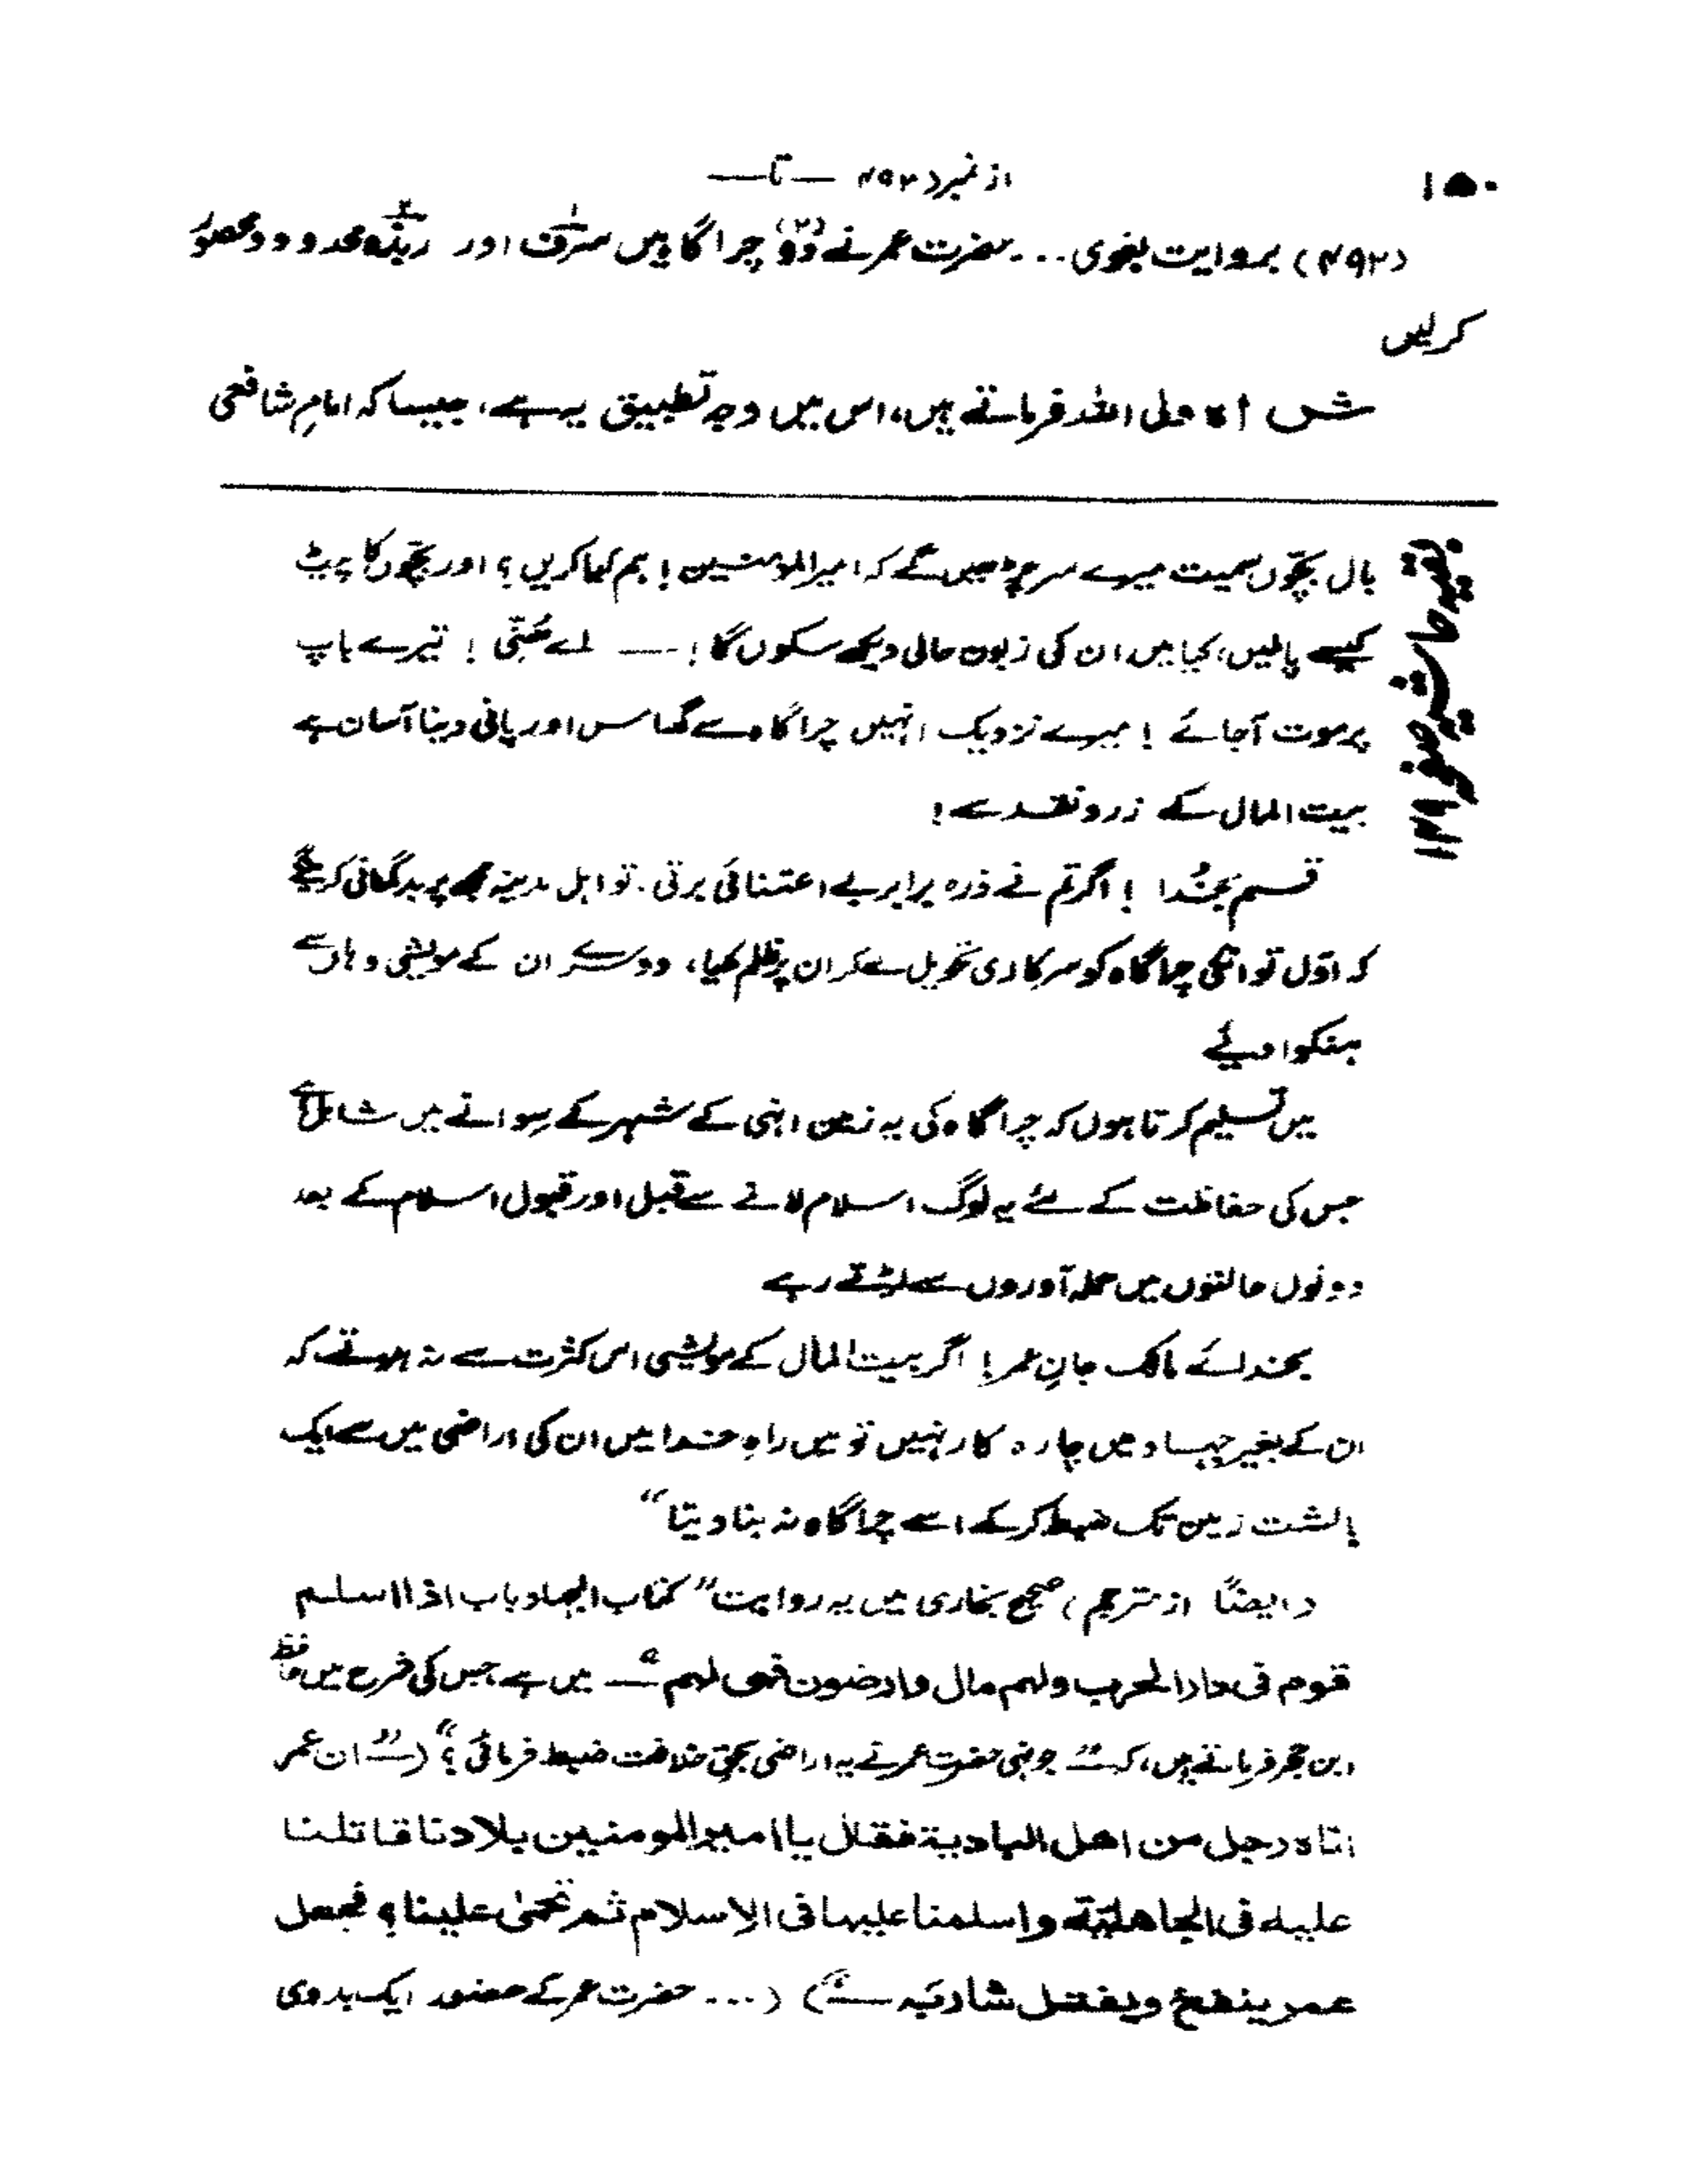 ۱۵۰
از نمبر (۴۹۲ — تا —
(۴۹۲) بروایت بغوی ... حضرت عمر نے دو (۲) چراگاہیں سرف اور ربذہ محدود و محصور
کر لیں
شاہ ولی اللہ فرماتے ہیں، اس میں وجہ تطبیق یہ ہے، جیسا کہ امامِ شافعی
بقیہ حاشیہ صفحہ ۱۴۱
بال بچّوں سمیت میرے سر چڑھیں گے کہ امیر المومنین! ہم کیا کریں؟ اور بچّوں کا پیٹ
کیسے پالیں، کیا میں ان کی زبون حالی دیکھ سکوں گا! — اے ! تیرے باپ
پر موت آجائے! میرے نزدیک انہیں چراگاہ سے گھاس اور پانی دینا آسان ہے
بیت المال کے زر و نقد سے!
قسم بخدا! اگر تم نے ذرہ برابر بے اعتنائی برتی۔ تو اہل مدینہ مجھ پر بدگمانی کرینگے
کہ اوّل تو انکی چراگاہ کو سرکاری تحویل لے کر ان پر ظلم کیا، دوسرے ان کے مویشی وہاں سے
ہنکوا دیئے
میں تسلیم کرتا ہوں کہ چراگاہ کی یہ زمین انہی کے شہر کے سوانے میں شامل ہے
جس کی حفاظت کے لئے یہ لوگ اسلام لانے سے قبل اور قبول اسلام کے بعد
دونوں حالتوں میں حملہ آوروں سے لڑتے رہے
بخدائے مالک جانِ عمر! اگر بیت المال کے مویشی اس کثرت سے نہ ہوتے کہ
ان کے بغیر جہاد میں چارہ کار نہیں تو میں راہِ خدا میں ان کی اراضی میں سے ایک
بالشت زمین تک ضبط کر کے اسے چراگاہ نہ بنا دیتا“
(ایضاً از مترجم) صحیح بخاری میں یہ روایت ”کتاب الجہاد باب اذا اسلم
قوم فی دار الحرب ولہم مال وارضون فہی لہم“ — میں ہے جس کی شرح میں حافظ
ابن حجر فرماتے ہیں، کہ — ”جونہی حضرت عمر نے یہ اراضی بحق خلافت ضبط فرمائی؟“ (— ”ان عمر
اتاہ رجل من اھل البادیۃ فقال یا امیر المومنین بلادنا قاتلنا
علیہ فی الجاھلیّۃ واسلمنا علیہا فی الاسلام ثم تحمٰی علینا؟ فجعل
عمر ینفخ ویفتل شاربہ —“) (... حضرت عمر کے حضور ایک بدوی